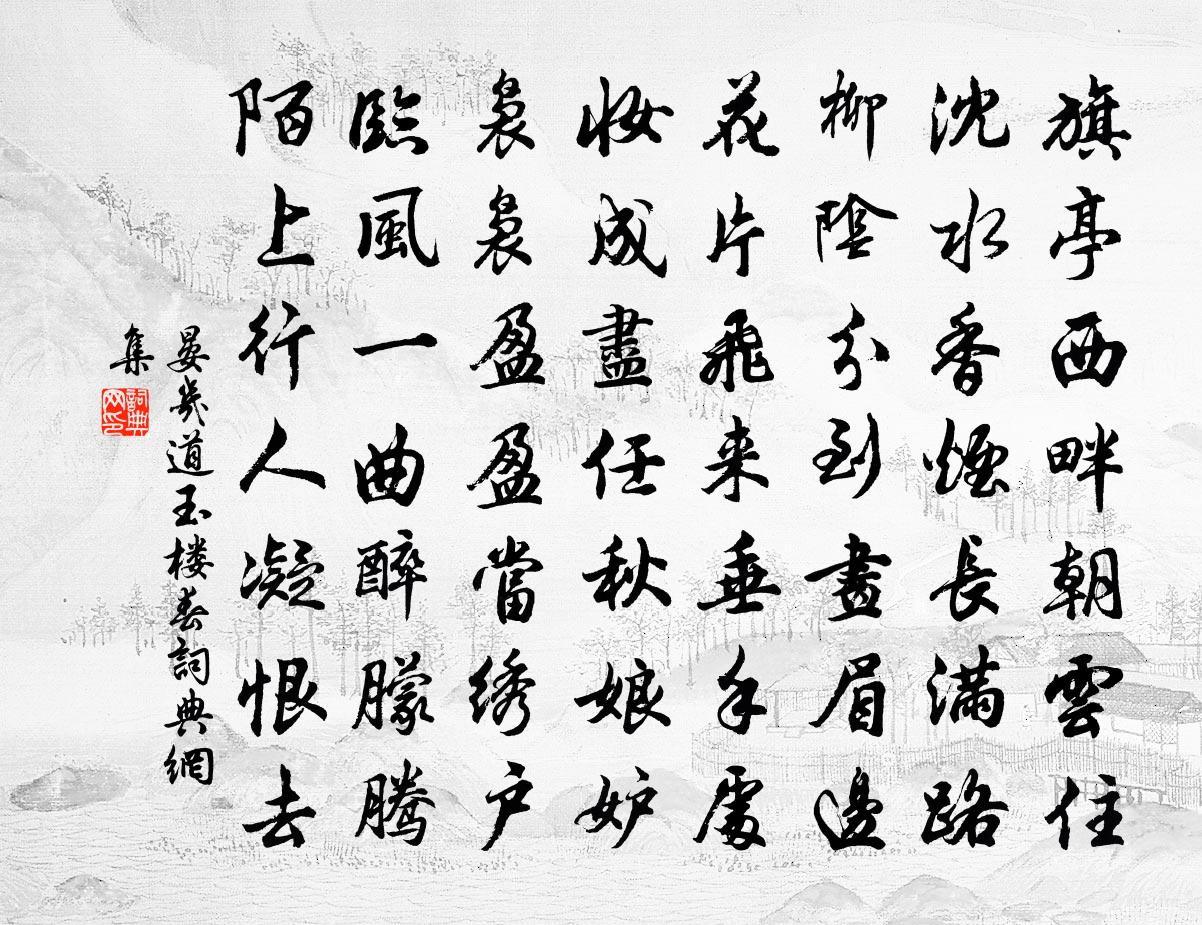 旗亭西畔朝雲住
沈水香煙長滿路
柳陰分到畫眉邊
花片飛来垂手處
妝成盡任秋娘妒
裊裊盈盈當綉戶
臨風一曲醉朦騰
陌上行人凝恨去
晏幾道玉楼春詞典網
集
詞典网印